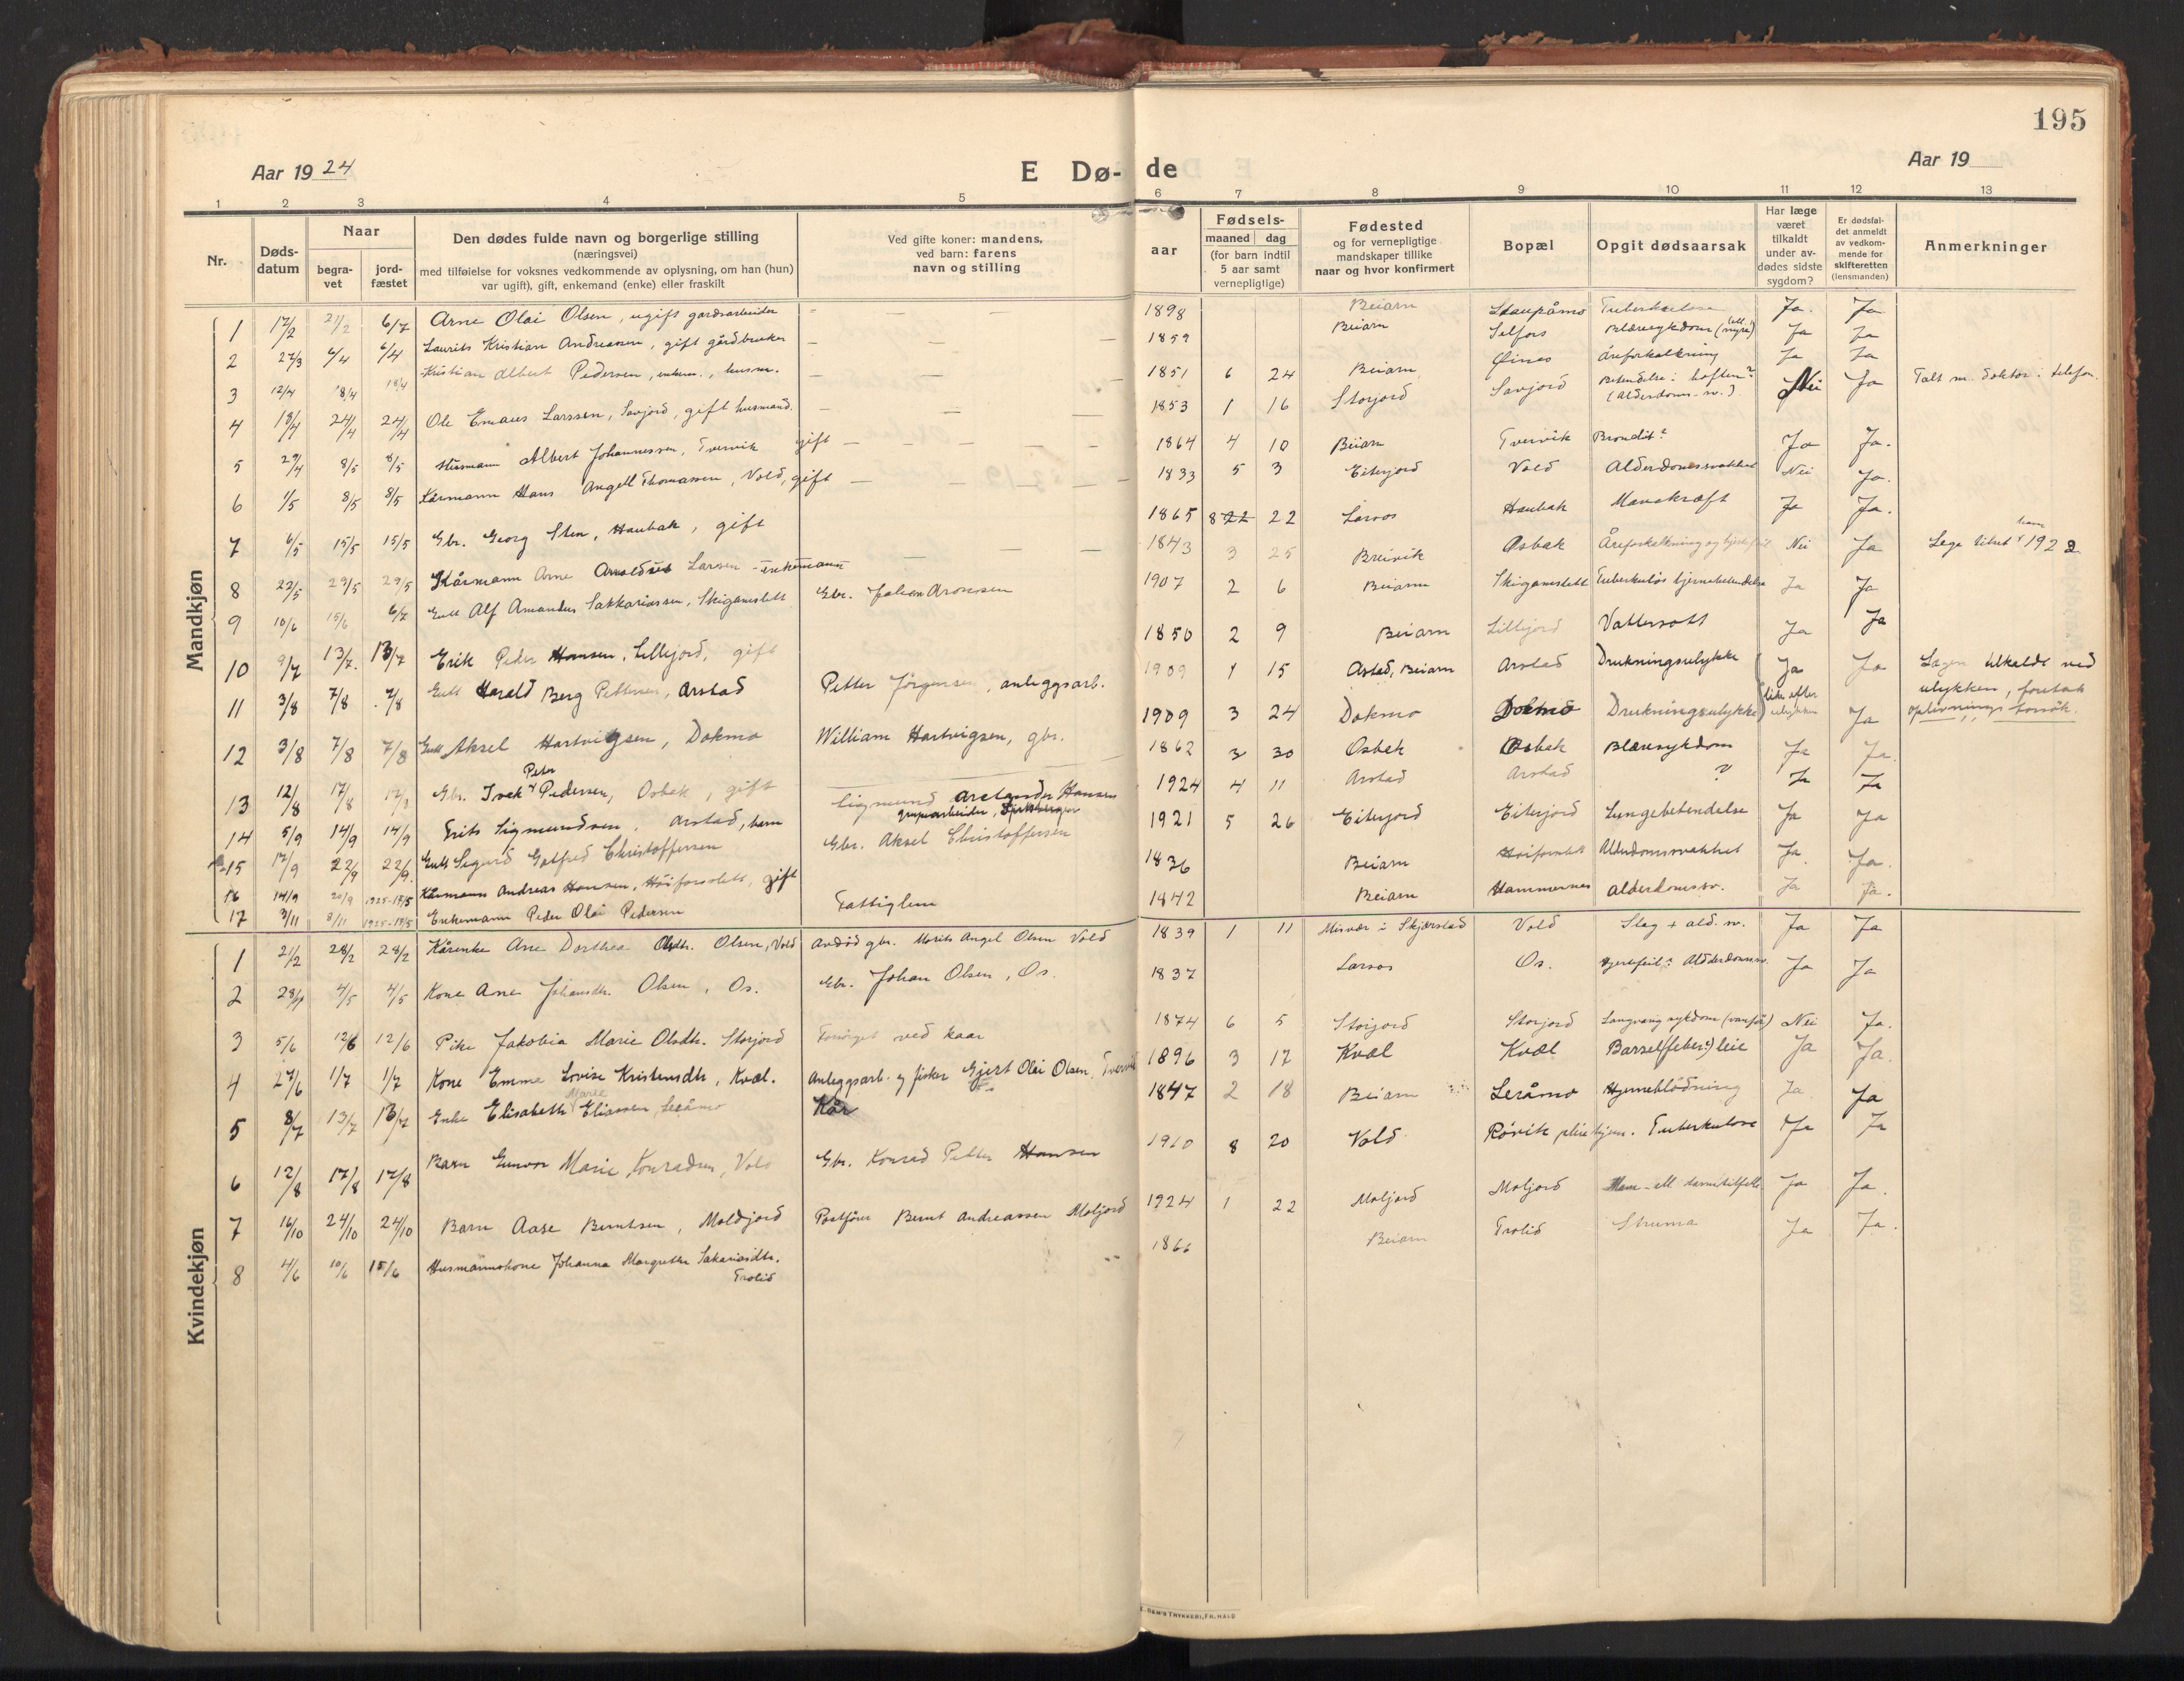 195
Aar 19 24
E Dø-de
Aar 19
1 2 3 4 5 6 7 8 9 10 11 12 13
Nr.
Døds-datum
Naar
begra-vet
jord-fæstet
Den dødes fulde navn og borgerlige stilling
(næringsvei)
med tilføielse for voksnes vedkommende av oplysning, om han (hun)
var ugift), gift, enkemand (enke) eller fraskilt
Ved gifte koner: mandens,
ved barn: farens
navn og stilling
aar
Fødsels-
maaned dag
(for barn indtil
5 aar samt
vernepligtige)
Fødested
og for vernepligtige
mandskaper tillike
naar og hvor konfirmert
Bopæl
Opgit dødsaarsak
Har læge
været
tilkaldt
under av-
dødes sidste
sygdom?
Er dødsfal-
det anmeldt
av vedkom-
mende for
skifteretten
(lensmanden)
Anmerkninger
Mandkjøn
1 17/2 21/2 6/7 Arne Olai Olsen, ugift gardsarbeider 1898 Beiarn Staupåmo Tuberkulose Ja. Ja
2 27/3 6/4 6/4 Laurits Kristian Andreassen, gift gårdbruker 1859 Beiarn Selfors Blæresykdom (ell. nyre) Ja Ja
3 12/4 18/4 18/4 Kristian Albert Pedersen, enkem., husm. 1851 6 24 Beiarn Åreforkalkning Ja Ja
4 18/4 24/4 24/4 Ole Emaus Larssen, Savjord, gift husmand. 1853 1 16 Storjord Savjord Betendelse i hoften? (Alderdoms-sv.) Nei Ja Talt m. doktor i telefon.
5 29/4 8/5 8/5 Husmann Albert Johannessen, Tvervik gift 1864 4 10 Beiarn Tvervik Bronchit? Ja Ja.
6 1/5 8/5 8/5 Kårmann Hans Angell Thomassen, Vold, gift 1833 5 3 Eiterjord Vold Alderdomssvakhet Nei Ja.
7 6/5 15/5 15/5 Gbr. Georg Sten, Haubak, gift 1865 8 22 22 Larsos Haubak Mavekræft Ja Ja.
8 22/5 29/5 29/5 Kårmann Arne Larsen - enkemann 1843 3 25 Breivik Osbak Åreforkalkning og hjertefeil Nei Ja Lege 1922
9 10/6 15/6 6/7 Gutt Alf Amandus Sakkariassen, Skigamslett Gbr. 1907 2 6 Beiarn Skigamslett Tuberkuløs hjernebetendelse Ja Ja
10 9/7 13/7. 13/7 Erik Peder Hansen, Lillejord, gift 1850 2 9 Beiarn Lillejord Vattersott Ja Ja
11 3/8 7/8 7/8 Gutt Harald Berg Pettersen, Arstad Petter Jörgensen, anleggsarb. 1909 1 15 Arstad, Beiarn Arstad Drukningsulykke Ja Ja Lægen tilkaldt ved ulykken, foretok oplivnings forsök.
12 3/8 7/8 7/8 Gutt Aksel Hartvigsen, Dokmo William Hartvigsen, gbr. 1909 3 24 Dokmo Dokmo Drukningsulykke like efter ulykken Ja
13 12/8 17/8 17/8 Gbr. Isak Peter Pedersen, Osbak, gift 1862 3 30 Osbak Osbak Blæresykdom Ja Ja.
14 5/9 14/9 14/9 Frits Sigmundsen. Arstad, barn Sigmund Hansen 1924 4 11 Arstad Arstad ? Ja Ja
15 17/9 22/9 22/9. Gutt Sigurd Gotfred Christoffersen Gbr. Aksel Christoffersen 1921 5 26 Eiterjord Eiterjord Lungebetendelse Ja Ja
16 14/9 20/9 1925-17/5 Kårmann Andreas Hansen, Höiforsslett, gift 1836 Beiarn Höiforslett Alderdomssvakhet Ja Ja.
17 3/11 8/11 1925-17/5 Enkemann Peder Olai Pedersen Fattiglem 1842 Beiarn Hammernes Alderdomssv. Ja Ja.
Kvindekjøn
1 21/2 28/2 28/2 Kårenke Ane Dorthea Olsdtr. Olsen, Vold Avdød gbr. Morits Angel Olsen Vold 1839 1 11 Misvær i Skjerstad Vold Slag + ald. sv. Ja Ja
2 28/4 4/5 4/5 Kone Ane Johansdtr. Olsen, Os. Gbr. Johan Olsen, Os. 1837 Larsos Os. Hjertefeil? Alderdomssv. Ja Ja
3 5/6 12/6 12/6 Pike Jakobia Marie Olsdtr. Storjord Forsörget ved kaar 1874 6 5 Storjord Storjord Langvarig sykdom (vanför) Nei Ja.
4 27/6 1/7 1/7 Kone Emma Lovise Kristensdtr, Kvæl. Anleggsarb. og fisker Gjert Olai Olsen, Tvervik 1896 3 17 Kvæl Kvæl Barsel(feber?)leie Ja Ja.
5 8/7 13/7 13/7 Enke Elisabeth Marie Eliassen, Leråmo Kår 1847 2 18 Beiarn Leråmo Hjerneblödning Ja. Ja
6 12/8 17/8 17/8 Barn Gunvor Marie Konradsen, Vold Gbr. Konrad Petter Hansen 1910 8 20 Vold Rövik pleiehjem. Tuberkulose Ja Ja
7 16/10 24/10 24/10 Barn Aase Berntsen, Moldjord Postfører Bernt Andreassen Moljord 1924 1 22 Moljord Moljord Mave- ell. tarmtilfelle Ja Ja.
8 4/6 10/6 15/6 Husmannskone Johanna Margrethe Sakariasdtr. Trolid 1866 Beiarn Trolid Struma Ja Ja.